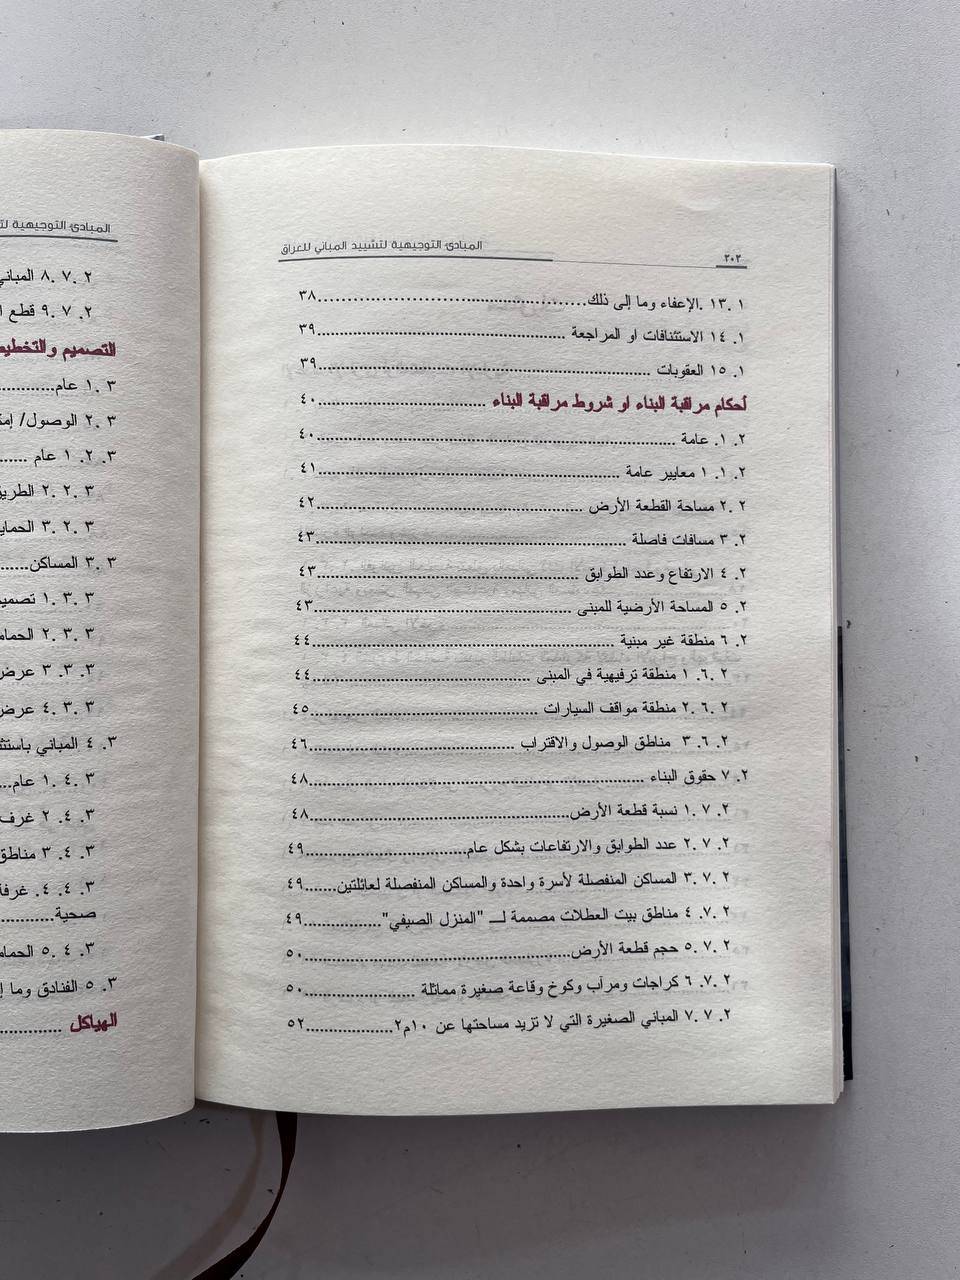 ٢٠٢
المبادئ التوجيهية لتشييد المباني للعراق
١. ١٣. الإعفاء وما إلى ذلك.................................٣٨
١. ١٤ الاستئنافات او المراجعة .................................٣٩
١. ١٥ العقوبات .................................٣٩
أحكام مراقبة البناء او شروط مراقبة البناء .................................٤٠
٢. ١. عامة .................................٤٠
٢. ١. ١ معايير عامة .................................٤١
٢. ٢ مساحة القطعة الأرض .................................٤٢
٢. ٣ مسافات فاصلة .................................٤٣
٢. ٤ الارتفاع وعدد الطوابق .................................٤٣
٢. ٥ المساحة الأرضية للمبنى .................................٤٣
٢. ٦ منطقة غير مبنية .................................٤٤
٢. ٦. ١ منطقة ترفيهية في المبنى .................................٤٤
٢. ٦. ٢ منطقة مواقف السيارات .................................٤٥
٢. ٦. ٣ مناطق الوصول والاقتراب .................................٤٦
٢. ٧ حقوق البناء .................................٤٨
٢. ٧. ١ نسبة قطعة الأرض.................................٤٨
٢. ٧. ٢ عدد الطوابق والارتفاعات بشكل عام.................................٤٩
٢. ٧. ٣ المساكن المنفصلة لأسرة واحدة والمساكن المنفصلة لعائلتين.......٤٩
٢. ٧. ٤ مناطق بيت العطلات مصممة لــ "المنزل الصيفي"..................٤٩
٢. ٧. ٥ حجم قطعة الأرض.................................٥٠
٢. ٧. ٦ كراجات ومرآب وكوخ وقاعة صغيرة مماثلة .................٥٠
٢. ٧. ٧ المباني الصغيرة التي لا تزيد مساحتها عن ١٠م٢.................٥٢
المبادئ التوجيهية
٢. ٧. ٨
٢. ٧. ٩ قطع
التصميم
٣. ١ عام............
٣. ٢ الوصول/
٣. ٢. ١ عام ......
٣. ٢. ٢
٣. ٢. ٣
٣. ٣ المساكن........
٣. ٣. ١
٣. ٣. ٢
٣. ٣. ٣ عرض
٣. ٣. ٤ عرض
٣. ٤ المباني
٣. ٤. ١ عام....
٣. ٤. ٢ غرف
٣. ٤. ٣
٣. ٤. ٤. غرفة
صحية............
٣. ٤. ٥
٣. ٥ الفنادق وما
الهياكل ............